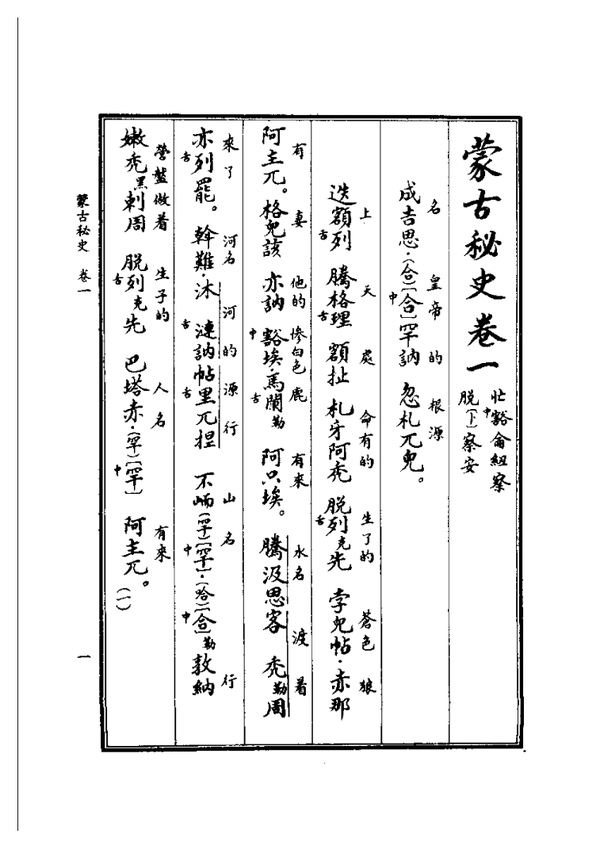 蒙古秘史卷一
忙中豁侖紐察
脱(卞)察安
名 皇帝的 根源
成吉思·(合)[中合]罕訥 忽札兀兒。
上 天 處 命有的 生了的 蒼色 狼
迭額舌列 騰格舌理 額扯 札牙阿禿 脱舌列克先 孛兒帖·赤那
有 妻 他的 慘白色 鹿 有來 水名 渡着
阿主兀。格兒該 亦訥 中豁埃·馬舌闌勒 阿只埃。 騰汲思客 禿勒周
來了 河名 河的源行 山名 行
亦舌列罷。 斡難·沐舌漣訥帖舌里兀捏 不峏(罕)[中罕]·(哈)[中合]勒敦納
營盤做着 生子的 人名 有來
嫩禿黑剌周 脱舌列克先 巴塔赤·(罕)[中罕] 阿主兀。(一)
蒙古秘史 卷一
一